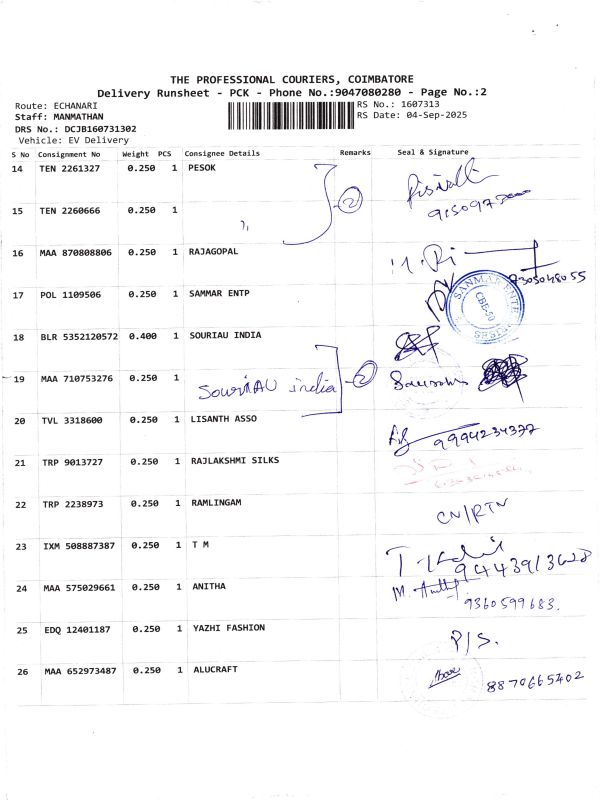 THE PROFESSIONAL COURIERS, COIMBATORE
Delivery Runsheet - PCK - Phone No.:9047080280 - Page No.:2
Route: ECHANARI
RS No.: 1607313
Staff: MANMATHAN
RS Date: 04-Sep-2025
DRS No.: DCJB160731302
Vehicle: EV Delivery
S No Consignment No Weight PCS Consignee Details Remarks Seal & Signature
14 TEN 2261327 0.250 1 PESOK
15 TEN 2260666 0.250 1 〃 2
16 MAA 870808806 0.250 1 RAJAGOPAL
7305048055
17 POL 1109506 0.250 1 SAMMAR ENTP
18 BLR 5352120572 0.400 1 SOURIAU INDIA
19 MAA 710753276 0.250 1 SouriAU india 2
20 TVL 3318600 0.250 1 LISANTH ASSO 9994234377
21 TRP 9013727 0.250 1 RAJLAKSHMI SILKS
22 TRP 2238973 0.250 1 RAMLINGAM CN/RTN
23 IXM 508887387 0.250 1 T M 9443913628
24 MAA 575029661 0.250 1 ANITHA 9360599683.
25 EDQ 12401187 0.250 1 YAZHI FASHION P/S.
26 MAA 652973487 0.250 1 ALUCRAFT 8870665402